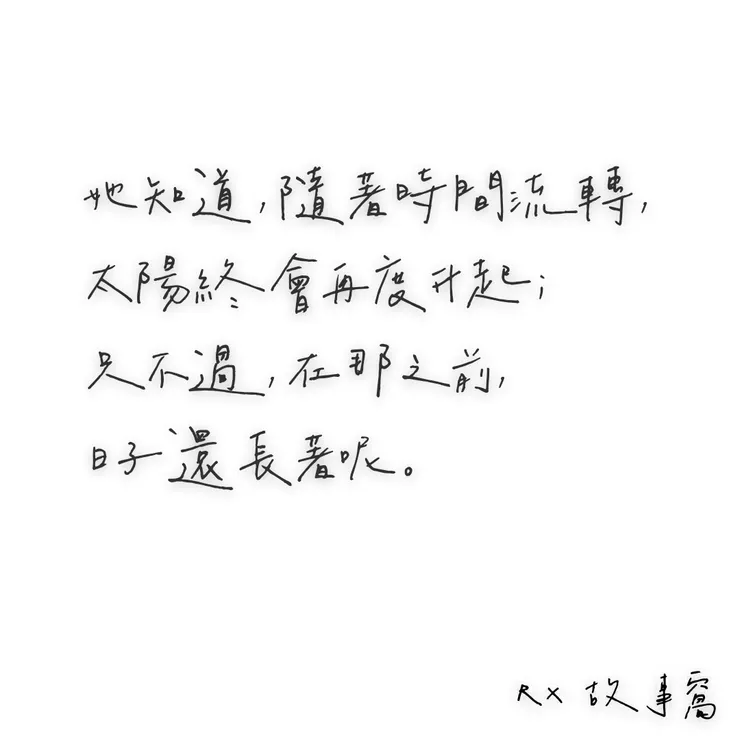 她知道,隨著時間流轉,
太陽終會再度升起;
只不過,在那之前,
日子還長著呢。
RX 故事窩